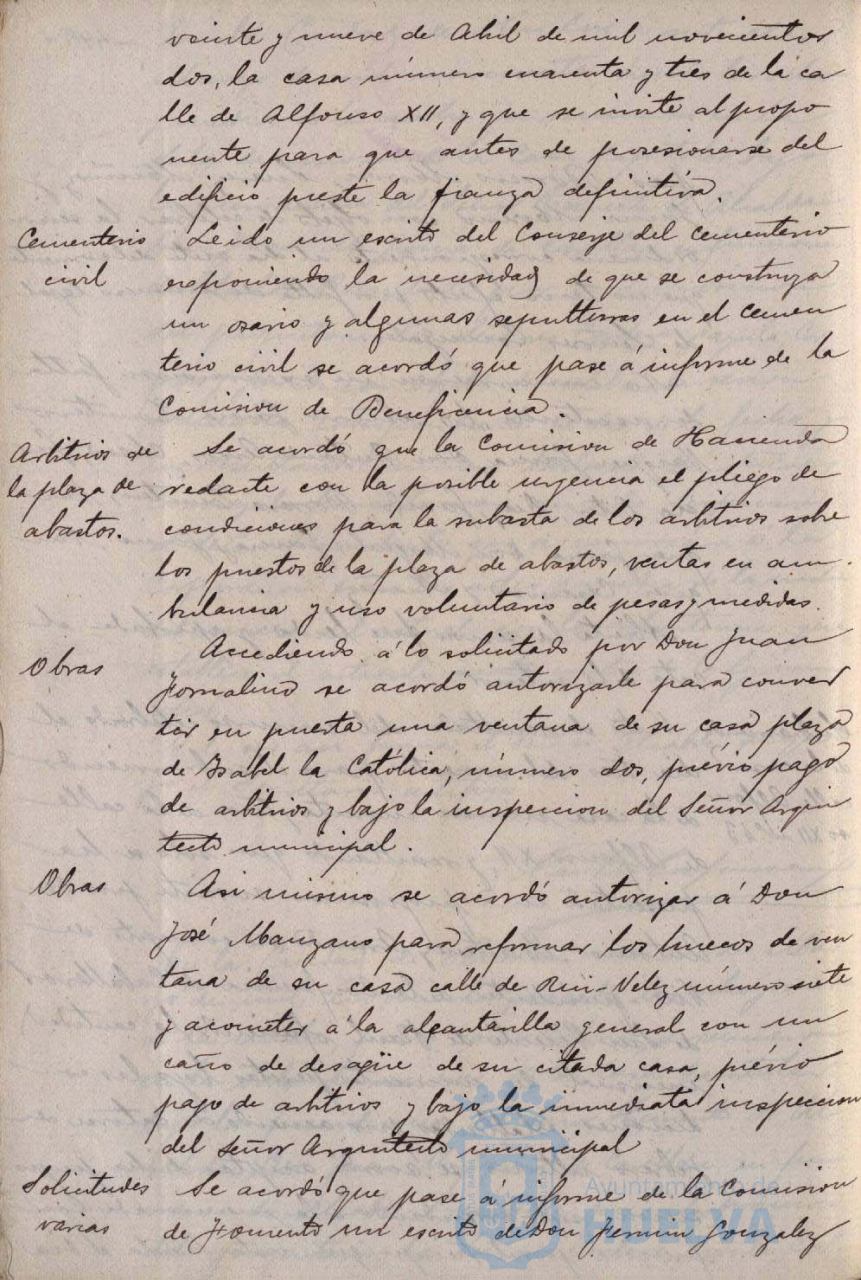 veinte y nueve de Abril de mil novecientos
dos, la casa número cuarenta y tres de la ca
lle de Alfonso XII, y que se invite al propo
nente para que antes de posesionarse del
edificio preste la fianza definitiva.
Cementerio
civil
Leido un escrito del Conserje del cementerio
exponiendo la necesidad de que se construya
un osario y algunas sepulturas en el cemen
terio civil se acordó que pase á informe de la
Comision de Beneficencia.
Arbitrios de
la plaza de
abastos.
Se acordó que la Comision de Hacienda
redacte con la posible urgencia el pliego de
condiciones para la subasta de los arbitrios sobre
los puestos de la plaza de abastos, ventas en am-
bulancia y uso voluntario de pesas y medidas.
Obras
Accediendo á lo solicitado por Don Juan
se acordó autorizarle para conver
tir en puerta una ventana de su casa plaza
de Isabel la Católica, número dos, prévio pago
de arbitrios y bajo la inspeccion del Señor Arqui
tecto municipal.
Obras
Asi mismo se acordó autorizar á Don
José Manzano para reformar los huecos de ven
tana de su casa calle de Rui-Velez número siete
y acometer á la alcantarilla general con un
caño de desagüe de su citada casa, prévio
pago de arbitrios y bajo la inmediata inspeccion
del Señor Arquitecto municipal
Solicitudes
varias
Se acordó que pase á informe de la Comision
de Fomento un escrito de Don Fermin Gonzalez
Ayuntamiento de
HUELVA